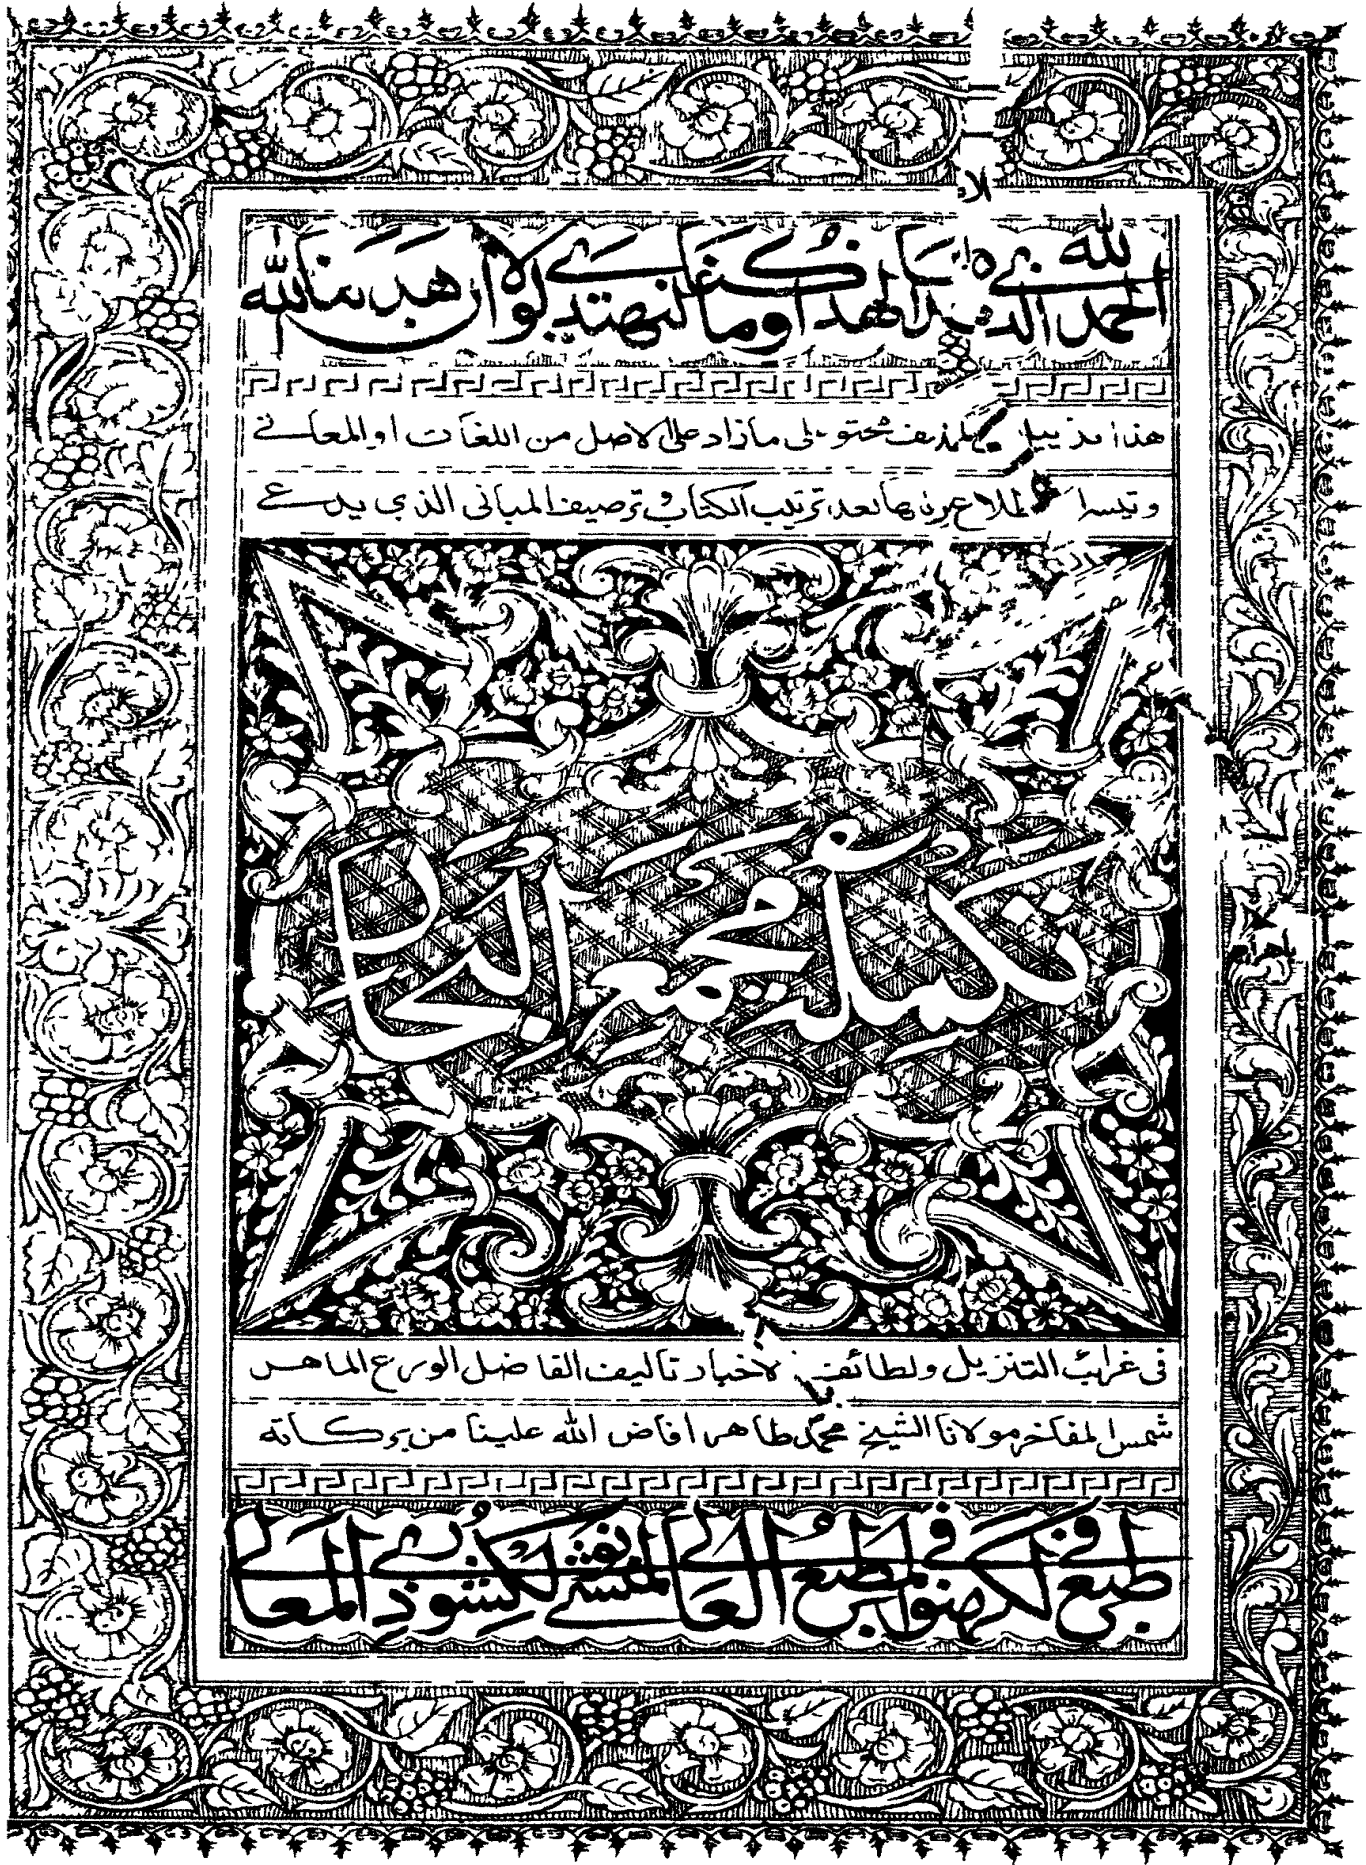 الحمد لله الذي هدانا لهذا وما كنا لنهتدي لولا ان هدانا الله
هذا تذييل محتو على ما زاد على الاصل من اللغات او المعاني
وتيسر الاطلاع عليها بعد ترتيب الكتاب وترصيف المباني الذي يدعى
تكملة مجمع البحار
فى غرائب التنزيل ولطائف الاخبار تاليف الفاضل الورع الماهر
شمس المفاخر مولانا الشيخ محمد طاهر افاض الله علينا من بركاته
طبع فى لكهنو فى المطبع العالي للمنشي نولكشور ذي المعالي